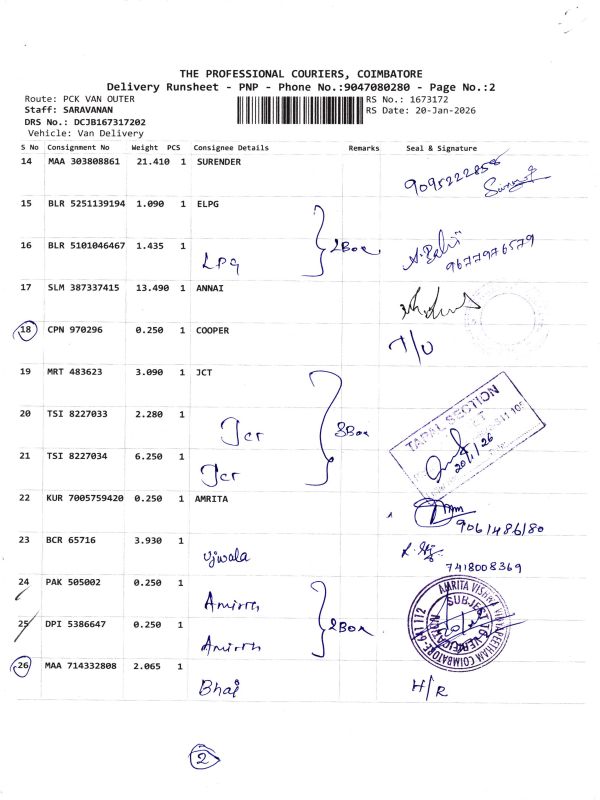 THE PROFESSIONAL COURIERS, COIMBATORE
Delivery Runsheet - PNP - Phone No.:9047080280 - Page No.:2
Route: PCK VAN OUTER
RS No.: 1673172
Staff: SARAVANAN
RS Date: 20-Jan-2026
DRS No.: DCJB167317202
Vehicle: Van Delivery
S No Consignment No Weight PCS Consignee Details Remarks Seal & Signature
14 MAA 303808861 21.410 1 SURENDER
15 BLR 5251139194 1.090 1 ELPG
16 BLR 5101046467 1.435 1 LPG 2Box
9677976579
17 SLM 387337415 13.490 1 ANNAI
18 CPN 970296 0.250 1 COOPER T/O
19 MRT 483623 3.090 1 JCT
20 TSI 8227033 2.280 1 Jcr 3Box
TAPAL SECTION
20/1/26
21 TSI 8227034 6.250 1 Jcr
22 KUR 7005759420 0.250 1 AMRITA
9061486180
23 BCR 65716 3.930 1 Ujwala
7418008369
24 PAK 505002 0.250 1 Amirth
25 DPI 5386647 0.250 1 Amirth 2Box
AMRITA VISHWA VIDYAPEETHAM COIMBATORE-641 112
SUBJECT TO VERIFICATION
26 MAA 714332808 2.065 1 Bhaj H/R
2